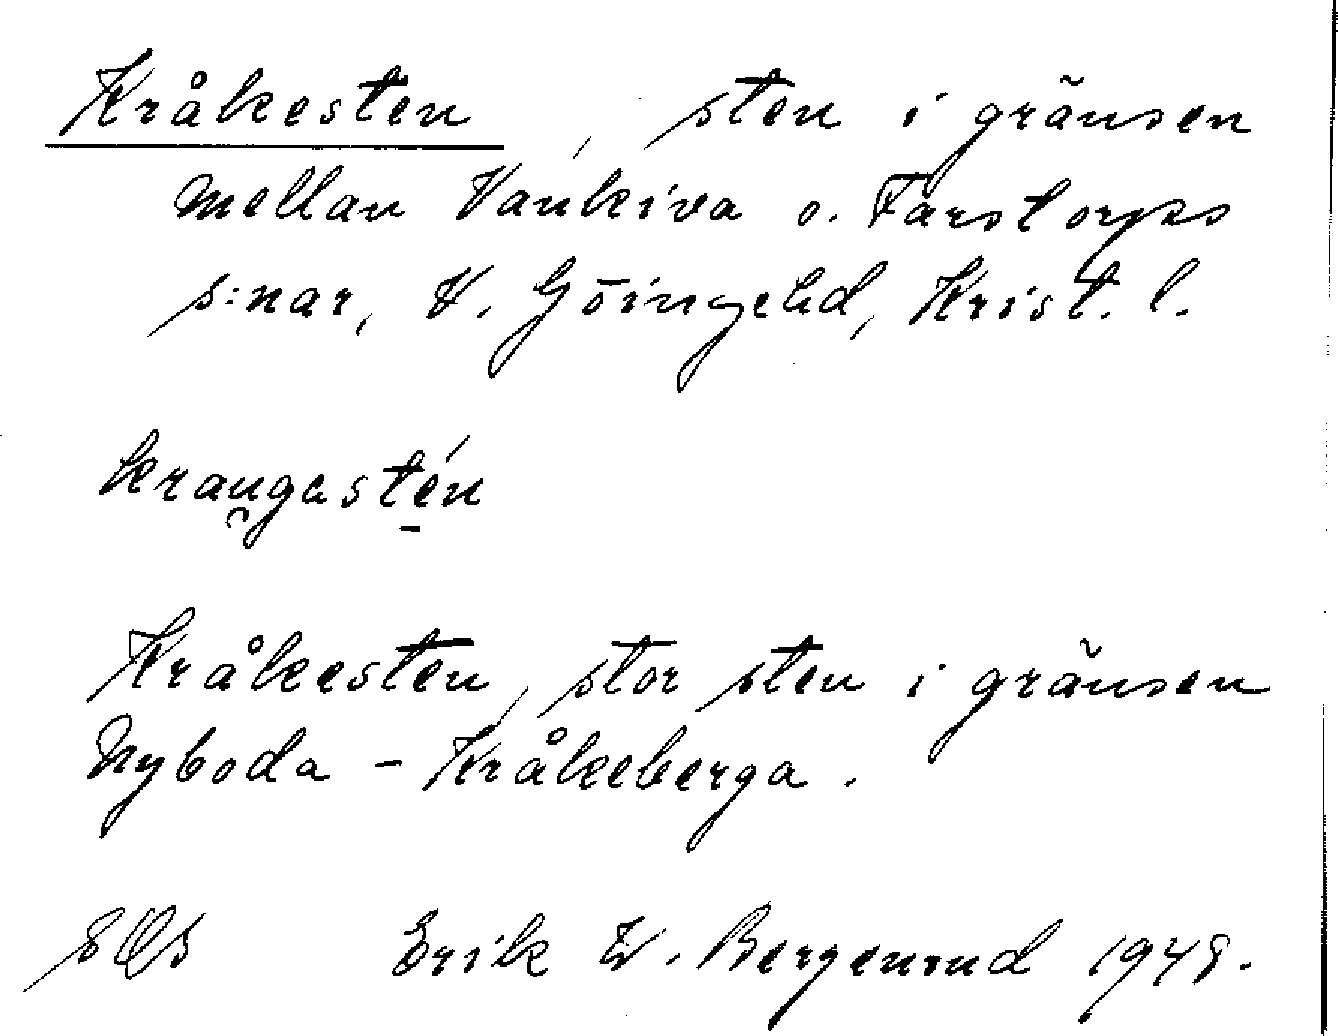 Kråkesten, sten i gränsen
mellan Vankiva o. Farstorps
s:nar, V. Göingehd, Krist. l.
kraugastén
Kråkesten, stor sten i gränsen
Nyboda - Kråkeberga.
Erik W. Bergenrud 1948.